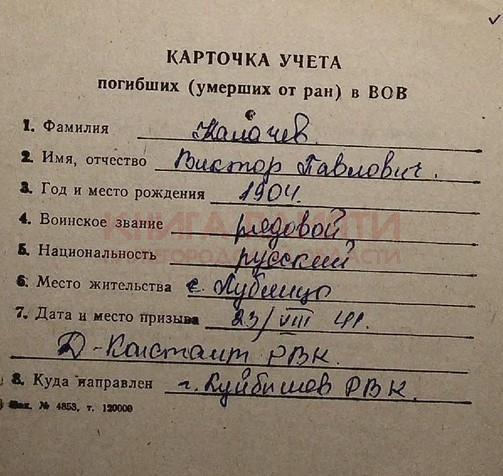 КАРТОЧКА УЧЕТА
погибших (умерших от ран) в ВОВ
1. Фамилия Калачев
2. Имя, отчество Виктор Павлович.
3. Год и место рождения 1904.
4. Воинское звание рядовой
КНИГА ПАМЯТИ
5. Национальность русский
6. Место жительства с.
7. Дата и место призыва 23/VIII 41.
Д-Констант РВК.
8. Куда направлен г. Куйбишев РВК.
Зак. № 4853, т. 120000